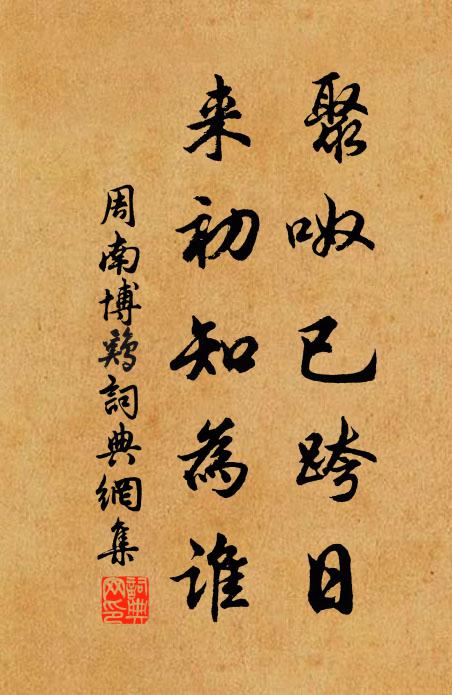 聚呶已跨日
来初知為誰
周南博鷄詞典網集
詞典网印